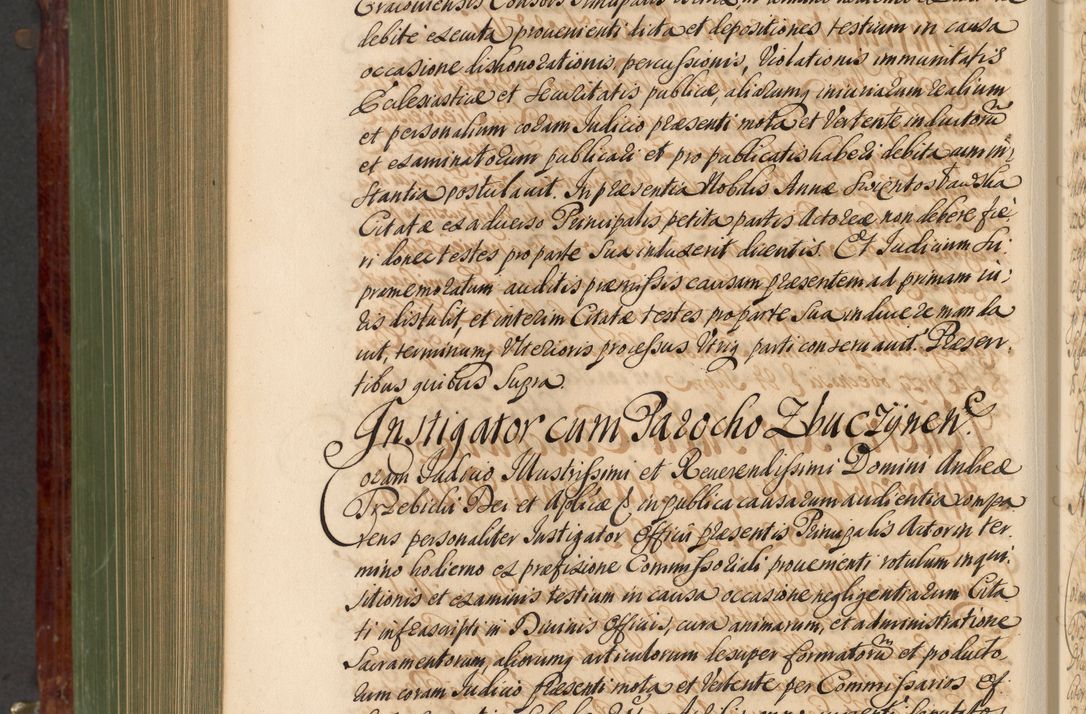 debite exequuta provenienti dicta et depositiones testium in causa
occasione dishonorationis, percussionis, Violationis immunitatis
Ecclesiasticae et Securitatis publicae, aliarumq iniuriarum realium
et personalium coram Iudicio praesenti mota et Vertente inductorũ
et examinatorum publicari et pro publicatis haberi debita cum in,
stantia postulavit. In praesentia Nobilis Annae Swiętosławska
Citatae ex adverso Principalis petita partis Actoreae non debere fie,
ri donec testes pro parte sua induxerit dicentis. Et Iudicium su,
pramemoratum auditis praemissis causam praesentem ad primam iu,
ris distulit, et interim Citatae testes pro parte sua inducere manda
vit, terminumq Ulterioris processus Utriq parti conservavit. Praesen,
tibus quibus Supra.
Instigator cum Parocho Zbuczÿnen.
Coram Iudicio Illustrissimi et Reverendissimi Domini Andreae
Trzebicki Dei et Aplicae & in publica causarum audientia compa
rens personaliter Instigator Officii praesentis Principalis Actor in ter,
mino hodierno ex praefixione Commissoriali provenienti rotulum inqui,
sitionis et examinis testium in causa occasione negligentiarum Cita
ti infrascripti in Divinis Officiis, cura animarum, et administratione
Sacramentorum, aliorumq articulorum desuper formatorũ et producto
rum coram Iudicio praesenti mota et Vertente per Commissarios ex